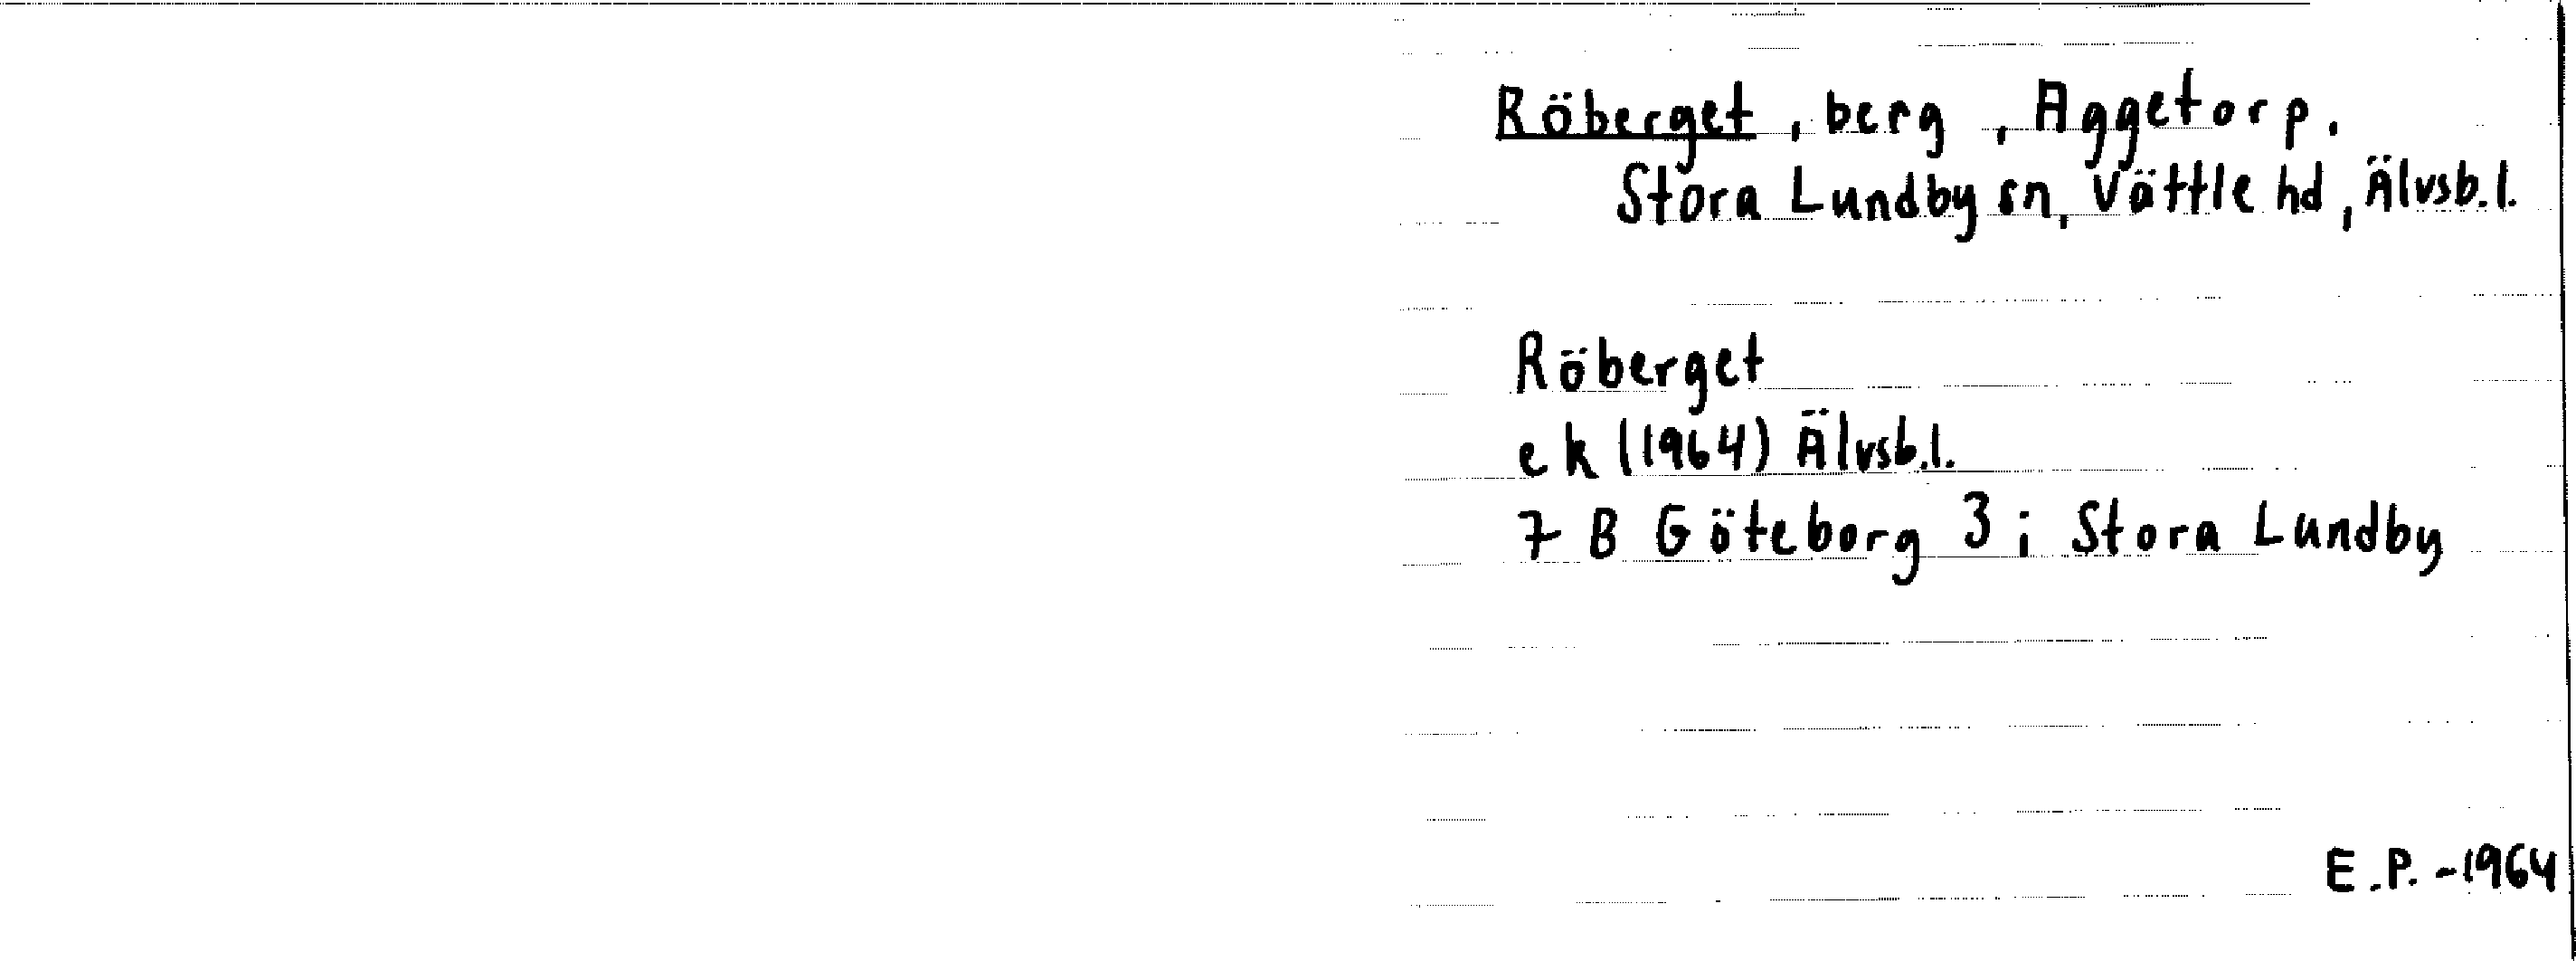 Röberget, berg, Aggetorp.
Stora Lundby sn, Vättle hd, Älvsb.l.
Röberget
ek (1964) Älvsb.l.
7 B Göteborg 3 i Stora Lundby
E.P. -1964